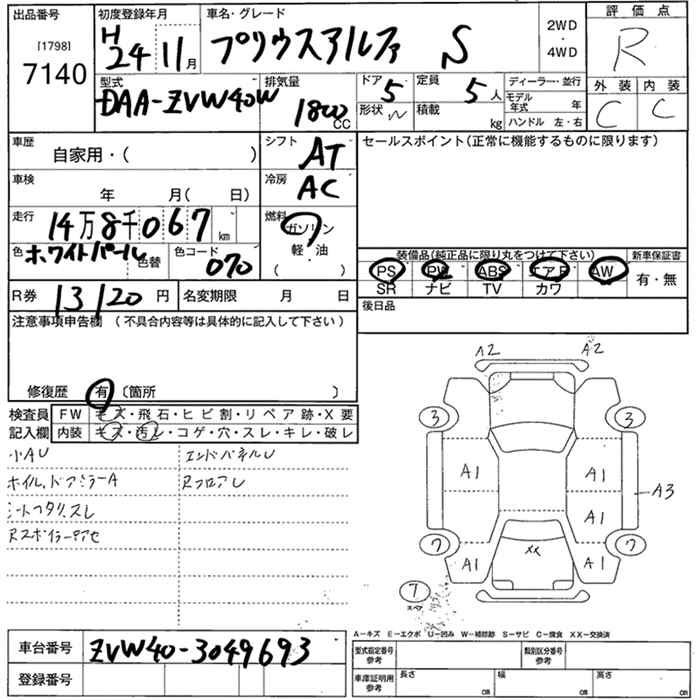 出品番号 初度登録年月 車名・グレード 2WD ・ 4WD 評価点
[1798]
7140
H 24 11月 プリウスアルファ S R
型式 排気量 ドア 定員 ディーラー・並行 外装 内装
DAA-ZVW40W 1800 CC 5 5人 モデル年式 年 C C
形状 W 積載 kg ハンドル 左・右
車歴 自家用・( ) シフト AT セールスポイント(正常に機能するものに限ります)
車検 年 月( 日) 冷房 AC
走行 14万8千067 km 燃料 ガソリン 軽・油 ( )
色 ホワイトパール 色替 色コード 070
装備品(純正品に限り丸をつけて下さい) 新車保証書
PS PW ABS エアB AW 有・無
SR ナビ TV カワ
R券 13120 円 名変期限 月 日 後日品
注意事項申告欄 (不具合内容等は具体的に記入して下さい)
修復歴 有 〔箇所 〕
検査員記入欄 FW キズ・飛石・ヒビ割・リペア跡・X要
内装 キズ・汚レ・コゲ・穴・スレ・キレ・破レ
小AU エンドパネルU
ホイル,ドアミラーA RフロアU
シートフタリスレ
Rスポイラーアセ
A2 A2
3 3
A1 A1 A3
A1
7 7
A1 XX A1
7
スペア
A-キズ E-エクボ U-凹み W-補修跡 S-サビ C-腐食 XX-交換済
車台番号 ZVW40-3049693 型式指定番号 参考 類別区分番号 参考
登録番号 車庫証明用 参考 長さ cm 幅 cm 高さ cm